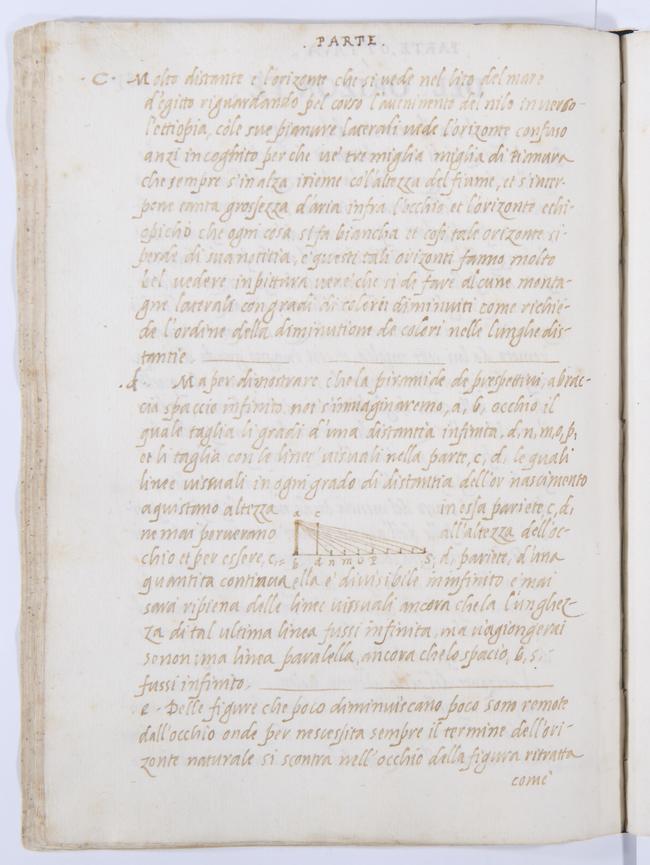 . PARTE.
. C . Molto distante e l'orizonte che si vede nel lito del mare
d'egitto riguardando pel corso l'avenimento del nilo inverso
l'ettiopia, cole sue pianure laterali vede l'orizonte confuso
anzi incognito per che ve tre miglia miglia di pianura
che sempre s'inalza insieme col'altezza del fiume, et s'inter-
pone tanta grossezza d'aria infra l'occhio et l'orizonte ethi-
opicho che ogni cosa si fa biancha et cosi tale orizonte si
perde di sua notitia, e questi tali orizonti fanno molto
bel vedere in pittura vero e che si de fare alcune monta-
gne laterali con gradi di colori diminuiti come richie-
de l'ordine della diminutione de colori nelle lunghe dis-
tantie
. d Ma per dimostrare che la piramide de prespettivi, abrac-
cia spaccio infinito noi s'immaginaremo, a, b, occhio il
quale taglia li gradi d'una distantia infinita, d, n, m, o, p,
et li taglia con le linee vissuali nella parte, c, d, le quali
linee vissuali in ogni grado di distantia dell'or nascimento
aquistano altezza in essa pariete, c, d,
a c
ne mai perverano all'altezza dell'oc-
chio et per essere, c, d, pariete, d'una
b d n m o P S
quantita continua ella e' divisibile in infinito e mai
sara ripiena delle linee vissuali ancora che la l'unghez-
za di tal ultima linea fussi infinita, ma v'agiongerai
se non una linea paralella, ancora che lo spacio, b, s,
fussi infinito.
. e . Delle figure che poco diminuiscano poco sono remote
dall'occhio onde per nescessita sempre il termine dell'ori-
zonte naturale si scontra nell'occhio della figura ritratta
come